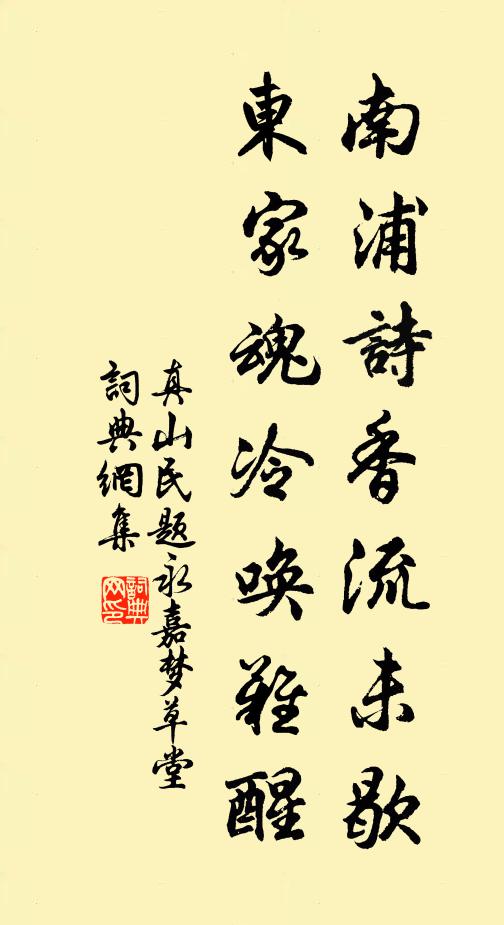 南浦詩香流未歇
東家魂冷唤難醒
真山民题永嘉梦草堂
詞典網集
詞典网印